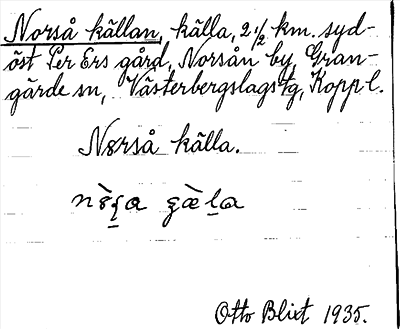 Norså källan, källa, 2 1/2 km. syd-
öst Per Ers gård, Norsån by, Gran-
gärde sn, Västerbergslags tg, Kopp l.
Norså källa.
Otto Blixt 1935.